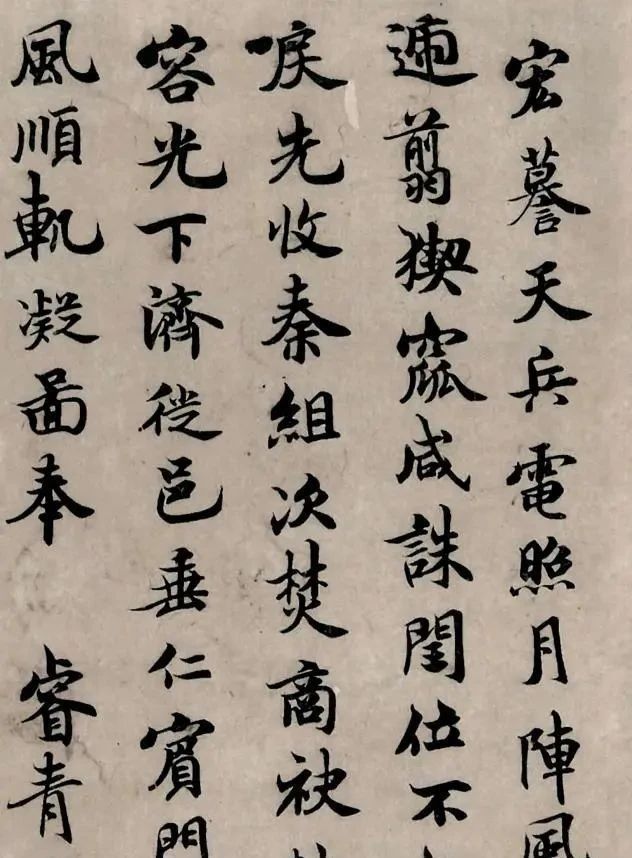 宏謩天兵電照月陣風
翦猰窳咸誅閏位不
唳先收秦組次焚商袂
容光下濟從邑垂仁賓門
風順軌凝圖奉 睿青